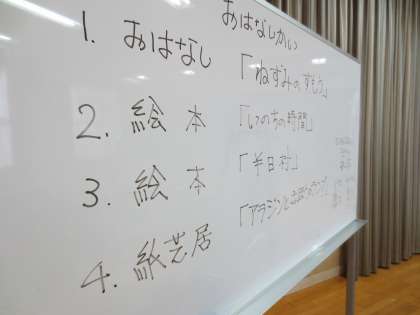 おはなしかい
1. おはなし 「ねずみのすもう」
2. 絵本 「いのちの時間」
3. 絵本 「半日村」
4. 紙芝居 「アラジンと